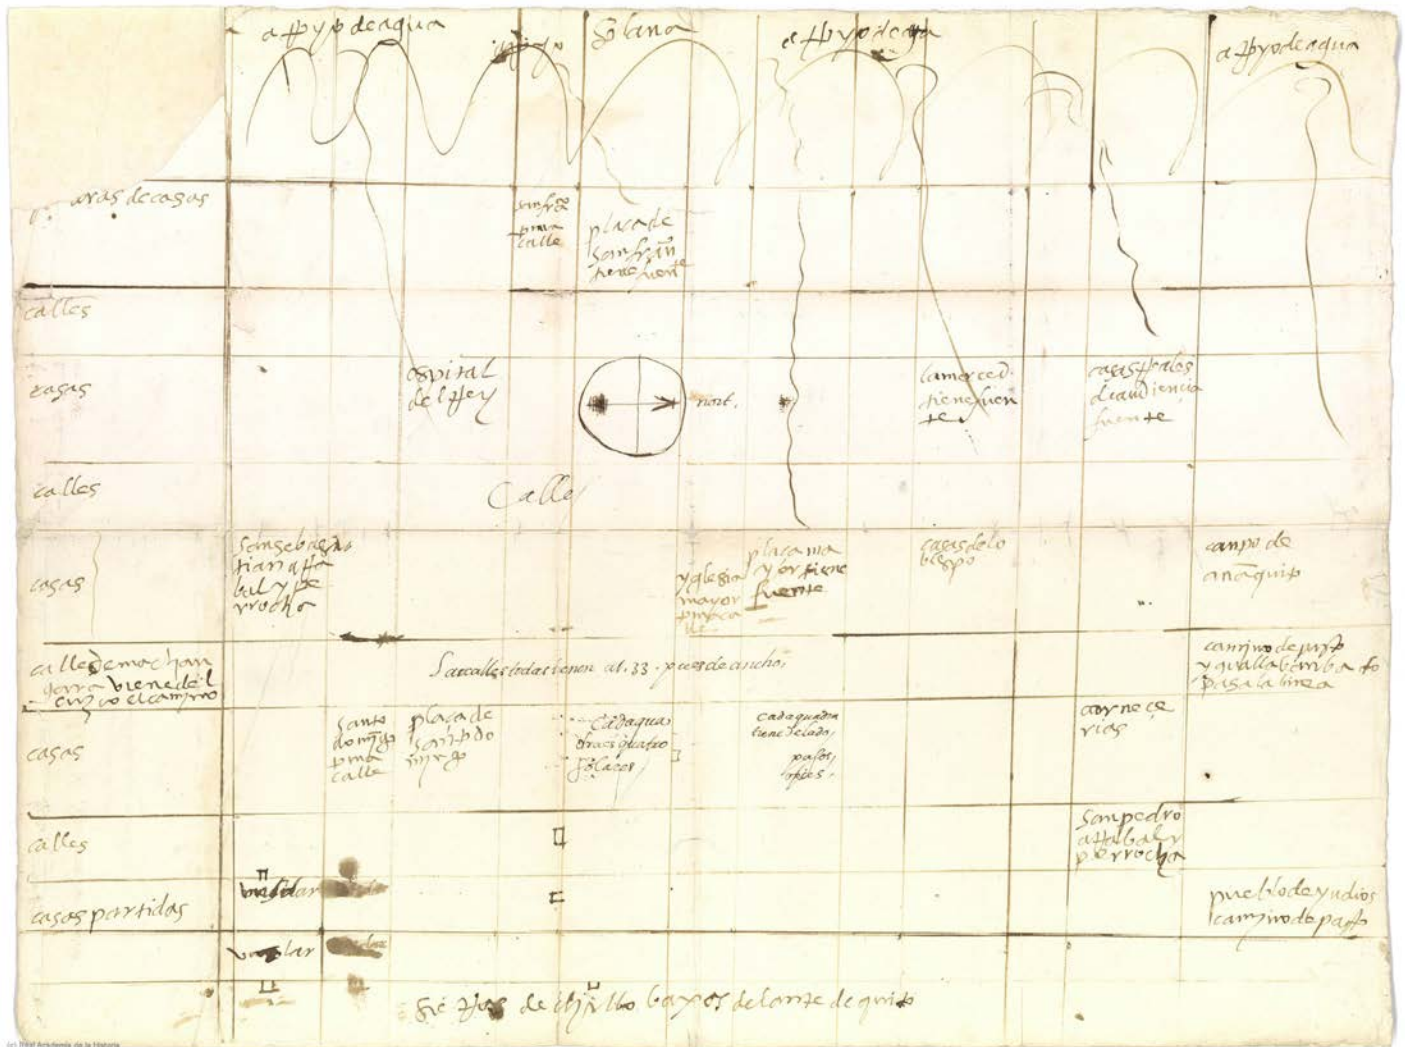 aRoyo de agua
Solana
aRoyo de agua
aRoyo de agua
aras de casas
sanfrco
pma
calle
plaça de
sanfran
tiene fuente
calles
casas
ospital
del Rey
nort.
lamerced
tiene fuen
te
casas Reales
de audiencia
fuente
calles
Calle
casas
san sebas
tian aRa
bal y pe
rrocha
yglesia
mayor
plaça ma
yor tiene
fuente
casas de lo
bispo
canpo de
anaquito
calle de machan
gara viene del
cuzco el camino
Las calles todas tienen al. 33. pies de ancho.
camino de pasto
y guallabamba do
pasa la linea
casas
santo
domigo
pma
calle
plaça de
santo do
migo
Cada qua
dra es quatro
solares
cada quadra
tiene de lado
pasos
o pies
carneçe
rias
calles
san pedro
aRabal y
perrocha
casas partidas
solar
pueblo de yndios
camino de pasto
solar
de chillo baxos delante de quito
(c) Real Academia de la Historia